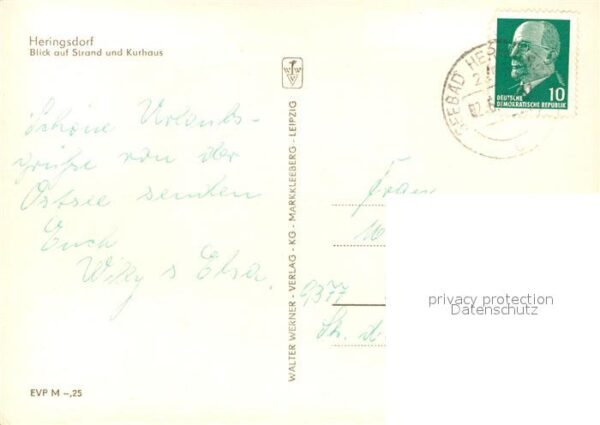 Heringsdorf
Blick auf Strand und Kurhaus
Schöne Urlaubs-
grüße von der
Ostsee senden
Euch
Willy s Elsa.
EVP M -,25
WALTER WERNER - VERLAG - KG - MARKKLEEBERG - LEIPZIG
W W
SEEBAD HE
10
DEUTSCHE
DEMOKRATISCHE REPUBLIK
Frau
9377
privacy protection
Datenschutz